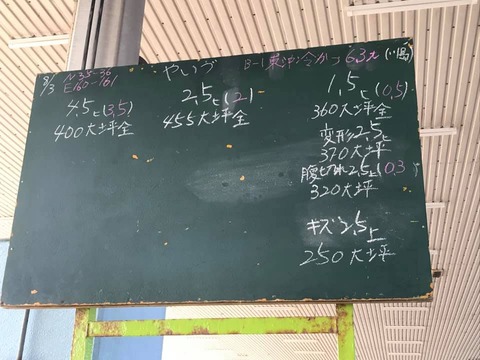 8/3
N35-36
E160-161
やいづ
B-1東沖冷かつ63
4.5上(3.5)
400大坪全
2.5上(2)
455大坪全
1.5上(0.5)
360大坪全
変形2.5上
370大坪
腹切れ2.5上(0.3
320大坪
キズ2.5上
250大坪